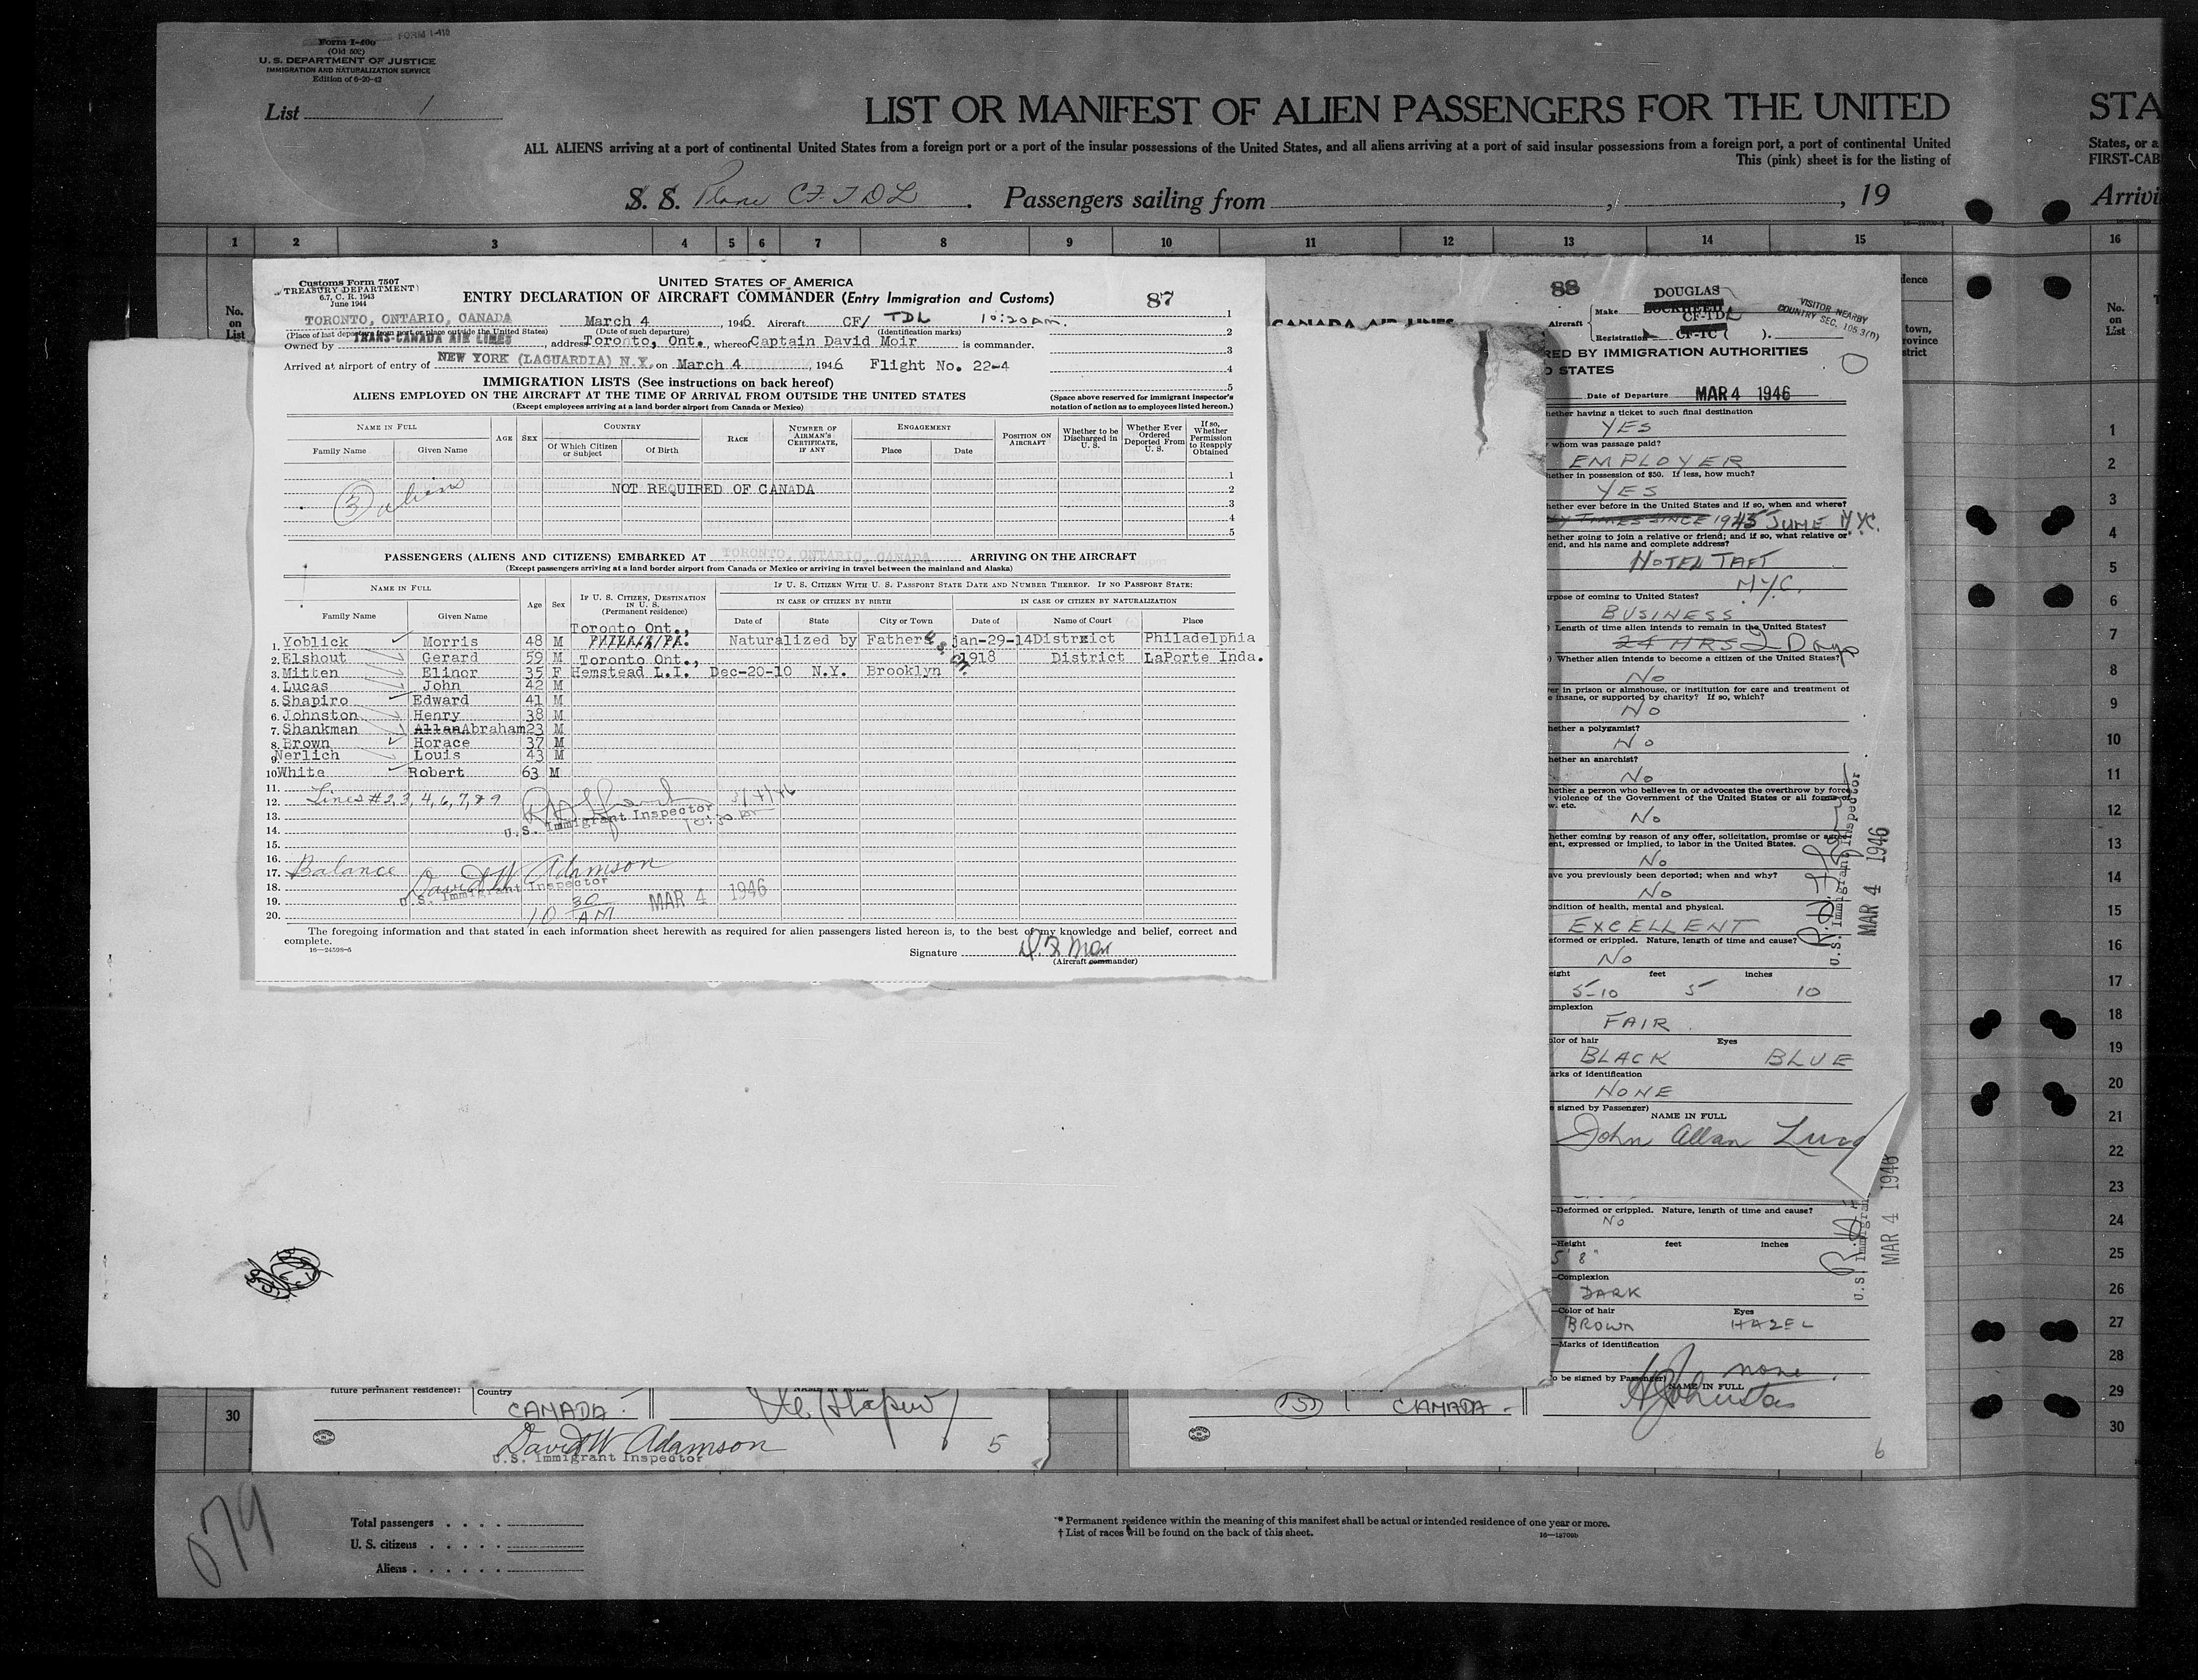 Form I-400 FORM I-410
(Old 502)
U. S. DEPARTMENT OF JUSTICE
IMMIGRATION AND NATURALIZATION SERVICE
Edition of 6-20-42
List 1
LIST OR MANIFEST OF ALIEN PASSENGERS FOR THE UNITED STA
ALL ALIENS arriving at a port of continental United States from a foreign port or a port of the insular possessions of the United States, and all aliens arriving at a port of said insular possessions from a foreign port, a port of continental United States, or a
This (pink) sheet is for the listing of FIRST-CAB
S. S. Plane CF TDL. Passengers sailing from , , 19 Arrivi
1 2 3 4 5 6 7 8 9 10 11 12 13 14 15 16
No. on List
Customs Form 7507
TREASURY DEPARTMENT
6.7, C. R. 1943
June 1944
UNITED STATES OF AMERICA
ENTRY DECLARATION OF AIRCRAFT COMMANDER (Entry Immigration and Customs) 87
TORONTO, ONTARIO, CANADA March 4, 1946 Aircraft CF/ TDL 10:20 am. 1
(Place of last departure from port or place outside the United States) (Date of such departure) (Identification marks) 2
Owned by TRANS-CANADA AIR LINES, address Toronto, Ont., whereof Captain David Moir is commander. 3
Arrived at airport of entry of NEW YORK (LAGUARDIA) N.Y. on March 4, 1946 Flight No. 22-4 4
IMMIGRATION LISTS (See instructions on back hereof) 5
ALIENS EMPLOYED ON THE AIRCRAFT AT THE TIME OF ARRIVAL FROM OUTSIDE THE UNITED STATES (Space above reserved for immigrant inspector's
(Except employees arriving at a land border airport from Canada or Mexico) notation of action as to employees listed hereon.)
NAME IN FULL AGE SEX COUNTRY RACE NUMBER OF AIRMAN'S CERTIFICATE, IF ANY ENGAGEMENT POSITION ON AIRCRAFT Whether to be Discharged in U. S. Whether Ever Ordered Deported From U. S. If so, Whether Permission to Reapply Obtained
Family Name Given Name Of Which Citizen or Subject Of Birth Place Date
1
3 aliens NOT REQUIRED OF CANADA 2
3
4
5
PASSENGERS (ALIENS AND CITIZENS) EMBARKED AT TORONTO, ONTARIO, CANADA ARRIVING ON THE AIRCRAFT
(Except passengers arriving at a land border airport from Canada or Mexico or arriving in travel between the mainland and Alaska)
NAME IN FULL Age Sex IF U. S. CITIZEN, DESTINATION IN U. S. (Permanent residence) IF U. S. CITIZEN WITH U. S. PASSPORT STATE DATE AND NUMBER THEREOF. IF NO PASSPORT STATE:
IN CASE OF CITIZEN BY BIRTH IN CASE OF CITIZEN BY NATURALIZATION
Family Name Given Name Date of State City or Town Date of Name of Court Place
Toronto Ont.,
1. Yoblick Morris 48 M PHILA/PA. Naturalized by Father Jan-29-14 District Philadelphia
2. Elshout Gerard 59 M Toronto Ont., 1918 District LaPorte Inda.
3. Mitten Elinor 35 F Hemstead L.I. Dec-20-10 N.Y. Brooklyn
4. Lucas John 42 M
5. Shapiro Edward 41 M
6. Johnston Henry 38 M
7. Shankman Allan Abraham 23 M
8. Brown Horace 37 M
9. Nerlich Louis 43 M
10. White Robert 63 M
11.
12. Lines # 2, 3, 4, 6, 7, 8 9 3/4/46
13. U.S. Immigrant Inspector 10:30
14.
15.
16.
17. Balance David W Adamson
18. U.S. Immigrant Inspector
19. MAR 4 1946
20. 10 30 AM
The foregoing information and that stated in each information sheet herewith as required for alien passengers listed hereon is, to the best of my knowledge and belief, correct and
complete.
16—24598-5
Signature
(Aircraft commander)
CANADA AIR LINES
88
Aircraft Make DOUGLAS LOCKHEED
Registration CF-TDL CF-TC ( ).
VISITOR NEARBY
COUNTRY SEC. 105.3(n)
RED BY IMMIGRATION AUTHORITIES
D STATES
Date of Departure MAR 4 1946
hether having a ticket to such final destination
YES
whom was passage paid?
EMPLOYER
hether in possession of $50. If less, how much?
YES
hether ever before in the United States and if so, when and where?
TIMES SINCE 1945 JUNE N.Y.C.
hether going to join a relative or friend; and if so, what relative or
end, and his name and complete address?
HOTEL TAFT
N.Y.C.
urpose of coming to United States?
BUSINESS
) Length of time alien intends to remain in the United States?
24 HRS 2 Days
) Whether alien intends to become a citizen of the United States?
No
er in prison or almshouse, or institution for care and treatment of
e insane, or supported by charity? If so, which?
No
hether a polygamist?
No
hether an anarchist?
No
hether a person who believes in or advocates the overthrow by force
violence of the Government of the United States or all forms of
w. etc.
No
hether coming by reason of any offer, solicitation, promise or agree
ent, expressed or implied, to labor in the United States.
No
ave you previously been deported; when and why?
No
ondition of health, mental and physical.
EXCELLENT
eformed or crippled. Nature, length of time and cause?
No
eight feet inches
5-10 5 10
omplexion
FAIR
olor of hair Eyes
BLACK BLUE
arks of identification
NONE
e signed by Passenger)
NAME IN FULL
John Allan Luca
U.S. Immigrant Inspector
MAR 4 1946
—Deformed or crippled. Nature, length of time and cause?
No
—Height feet inches
5' 8"
—Complexion
DARK
—Color of hair Eyes
BROWN HAZEL
—Marks of identification
none
o be signed by Passenger)
NAME IN FULL
HJohnston
U.S. Immigran
MAR 4 1946
lence
town,
rovince
strict
No. on List
1
2
3
4
5
6
7
8
9
10
11
12
13
14
15
16
17
18
19
20
21
22
23
24
25
26
27
28
29
30
30
future permanent residence): Country
CANADA
NAME IN FULL
David W Adamson
U.S. Immigrant Inspector
5
5 CANADA
6
079
Total passengers
U. S. citizens
Aliens
* Permanent residence within the meaning of this manifest shall be actual or intended residence of one year or more.
† List of races will be found on the back of this sheet.
16—18709b